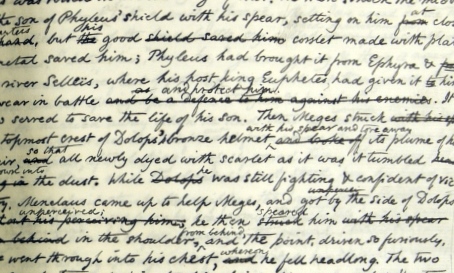 the son of Phyleus' shield with his spear, setting on him from close
at
hand, but the good shield saved him corslet made with plates
his
metal saved him; Phyleus had brought it from Ephyra &
river Selleis, where his host, king Euphetes, had given it to him
wear in battle and be a defence to him against his enemies. It
as and protect him.
served to save the life of his son. Then Meges struck with his
topmost crest of Dolops' bronze helmet and broke off its plume of
with his spear and tore away
so that
and all newly dyed with scarlet as it was it tumbled
the dust. While Dolops was still fighting & confident of
he
Menelaus came up to help Meges, and got by the side of Dolops
unperceived;
that his perceiving him; he then struck him with his spear
speared
behind in the shoulder, and the point, driven so furiously,
from behind
went through into his chest, and he fell headlong. The two
whereon